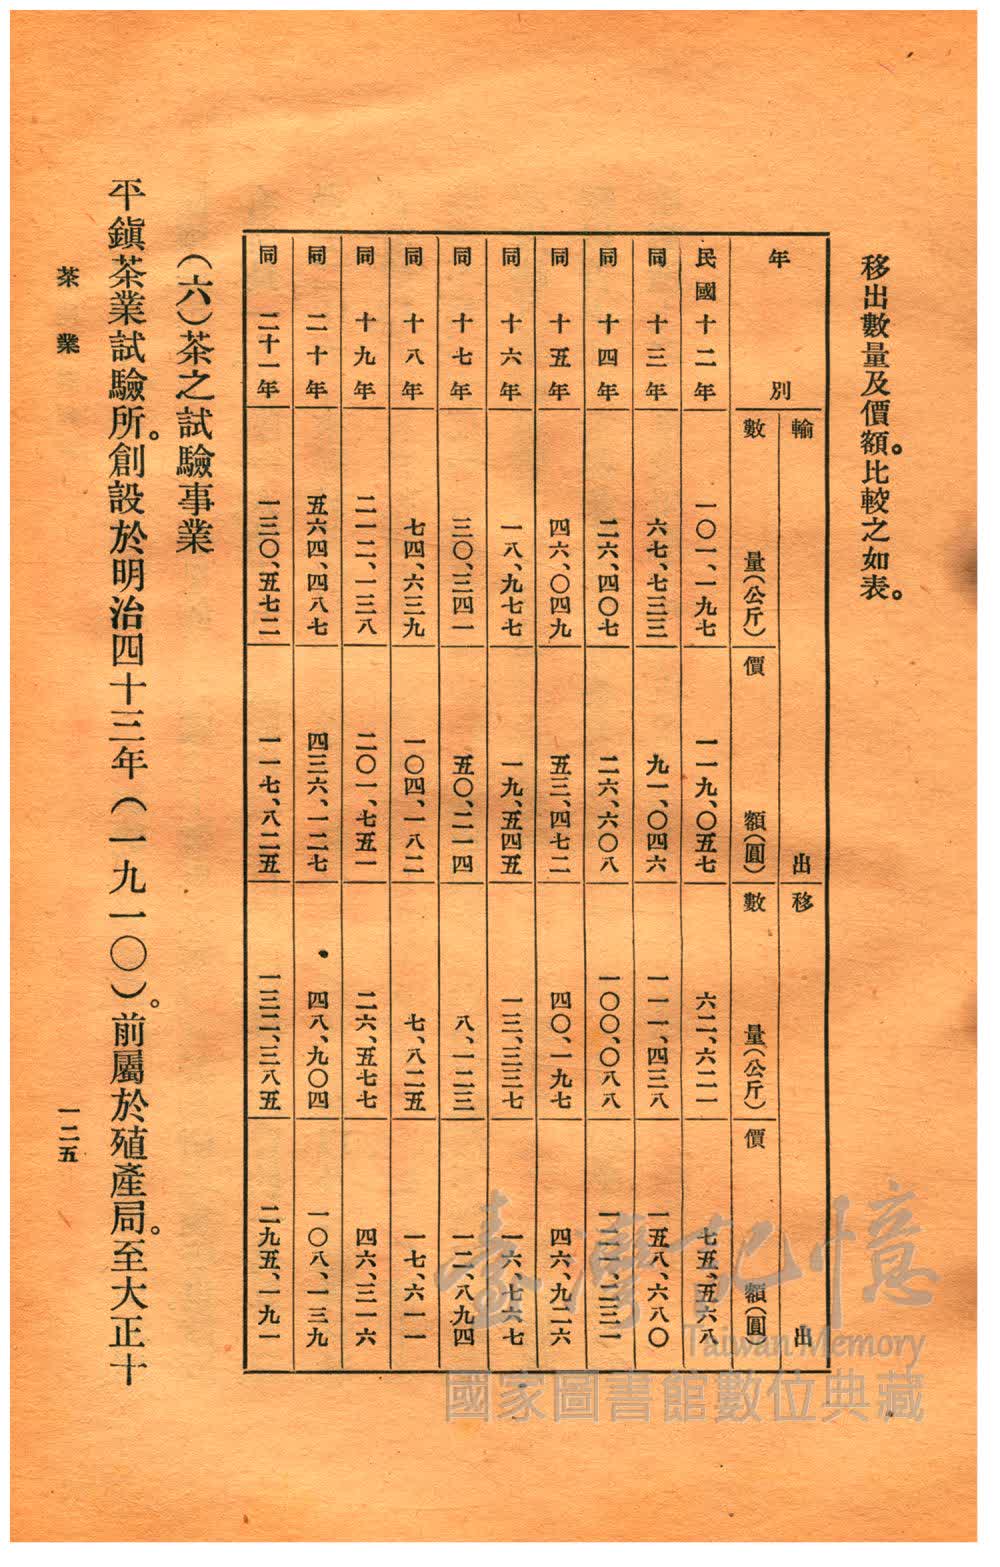 移出數量及價額。比較之如表。
年別
輸出
數量(公斤)
價額(圓)
移出
數量(公斤)
價額(圓)
民國十二年 一〇一、一九七 一一九、〇五七 六二、六二一 七五、五六八
同十三年 六七、七三三 九一、〇四六 一一一、四三八 一五八、六八〇
同十四年 二六、四〇七 二六、六〇八 一〇〇、〇八八 一二一、二三一
同十五年 四六、〇四九 五三、四七二 四〇、一九七 四六、九二六
同十六年 一八、九七七 一九、五四五 一三、三三七 一六、七六七
同十七年 三〇、三四一 五〇、二一四 八、一二三 一二、八九四
同十八年 七四、六三九 一〇四、一八二 七、八二五 一七、六一一
同十九年 二一二、一三八 二〇一、七五一 二六、五七七 四六、三一六
同二十年 五六四、四八七 四三六、一二七 四八、九〇四 一〇八、一三九
同二十一年 一三〇、五七二 一一七、八二五 一三二、三八五 二九五、一九一
(六)茶之試驗事業
平鎭茶業試驗所。創設於明治四十三年(一九一〇)。前屬於殖產局。至大正十
茶業
一二五
臺灣記憶
Taiwan Memory
國家圖書館數位典藏